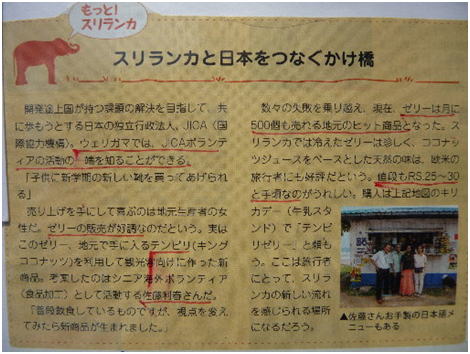 もっと!
スリランカ
スリランカと日本をつなぐかけ橋
開発途上国が持つ課題の解決を目指して、共
に歩もうとする日本の独立行政法人、JICA〈国
際協力機構〉。ウェリガマでは、JICAボラン
ティアの活動の一端を知ることができる。
「子供に新学期の新しい靴を買ってあげられ
る」
売り上げを手にして喜ぶのは地元生産者の女
性だ。ゼリーの販売が好調なのだという。実は
このゼリー、地元で手に入るテンビリ(キング
ココナッツ)を利用して観光客向けに作った新
商品。考案したのはシニア海外ボランティア
(食品加工)として活動する佐藤利春さんだ。
「普段飲食しているものですが、視点を変え
てみたら新商品が生まれました。」
数々の失敗を乗り越え、現在、ゼリーは月に
500個も売れる地元のヒット商品となった。ス
リランカでは冷えたゼリーは珍しく、ココナ
ッツジュースをベースとした天然の味は、欧米の
旅行者にも好評だという。値段もRS.25~30
と手頃なのがうれしい。購入は上記地図のキリ
カデー(牛乳スタ
ンド)で「テンビ
リゼリー」と頼も
う。ここは旅行者
にとって、スリラ
ンカの新しい流れ
を感じられる場所
になるだろう。
▲佐藤さんお手製の日本語メ
ニューもある